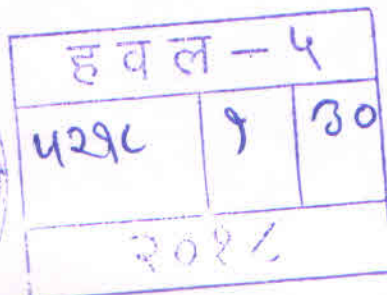 हवल - ५
५२१८ १ ३०
२०१८